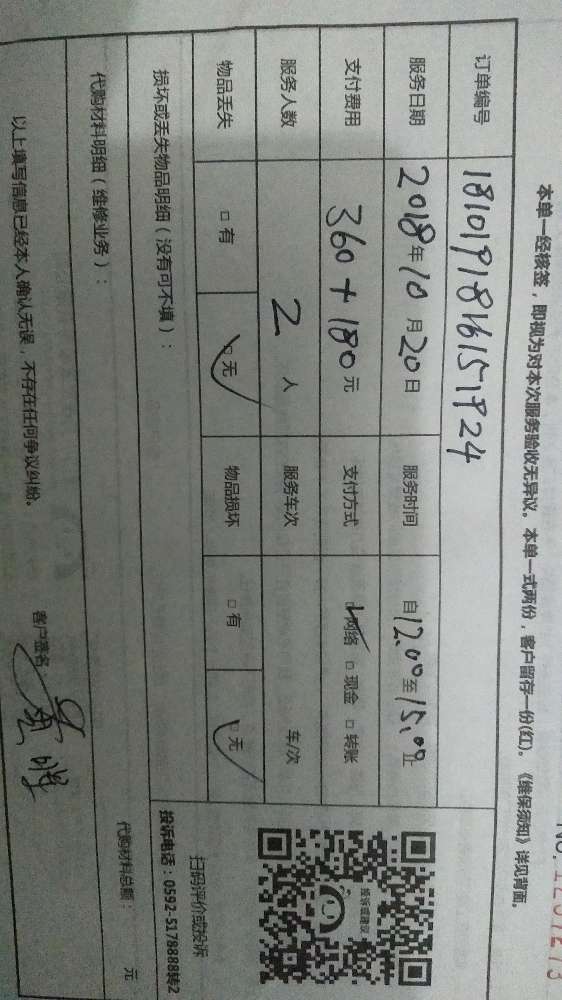 本单一经核签，即视为对本次服务验收无异议。本单一式两份，客户留存一份(红)。《维保须知》详见背面。
订单编号 1810191816151924
服务日期 2018年10月20日 服务时间 自12.00至15.00止
支付费用 360+180元 支付方式 □网络 □现金 □转账
服务人数 2人 服务车次 车/次
物品丢失 □有 □无 物品损坏 □有 □无
损坏或丢失物品明细（没有可不填）：
投诉或建议
扫码评价或投诉
投诉电话：0592-5178888转2
代购材料明细（维修业务）： 代购材料总额： 元
以上填写信息已经本人确认无误，不存在任何争议纠纷。 客户签名：